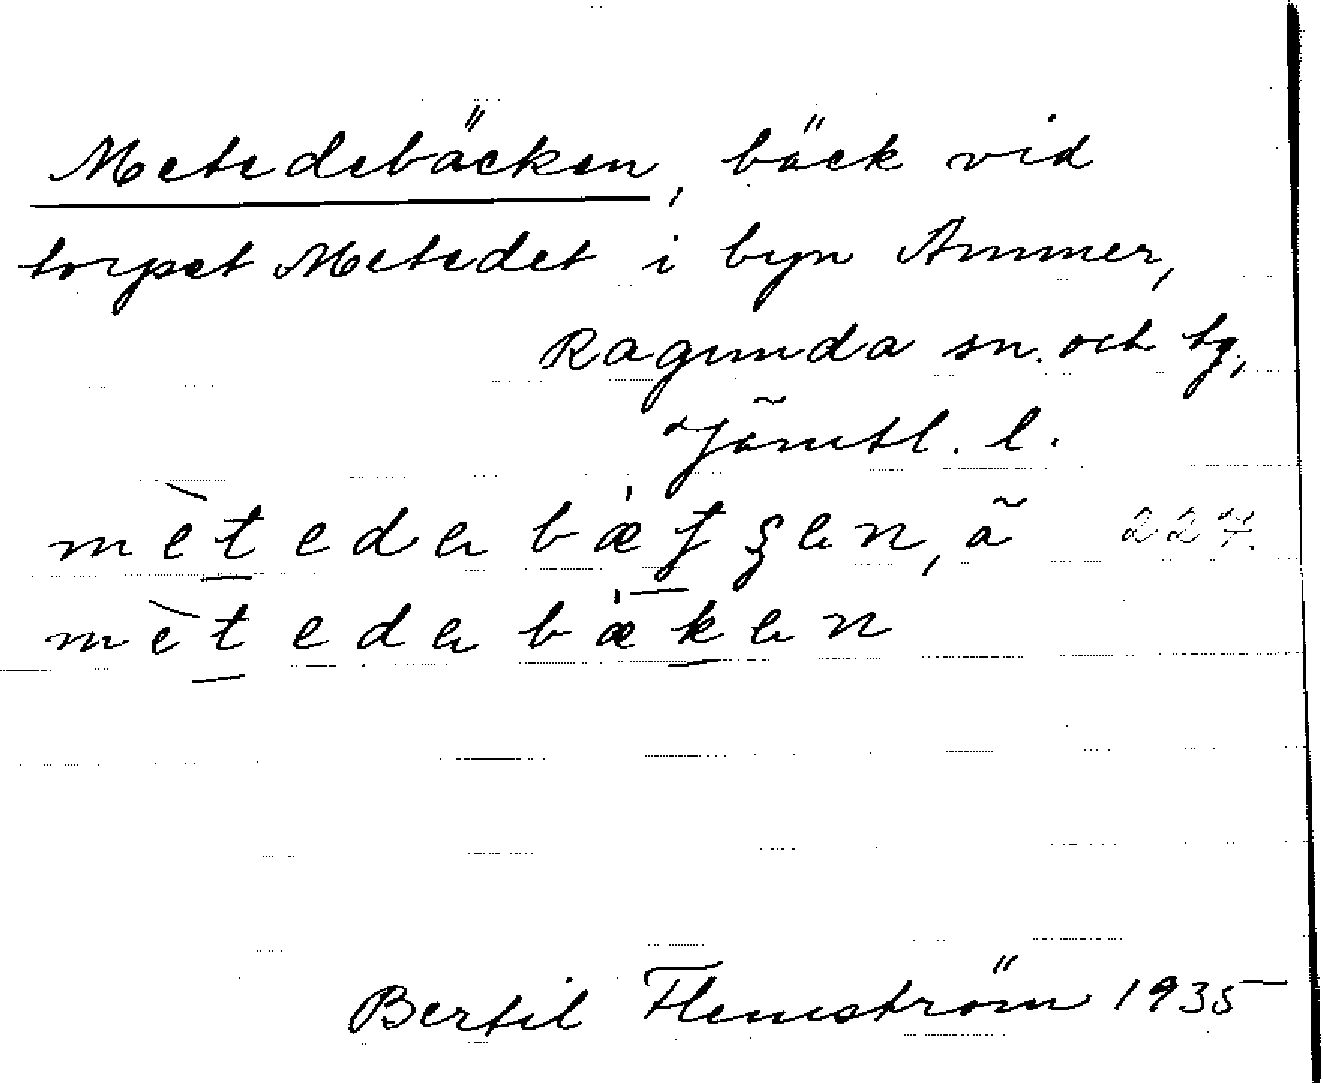 Metedebäcken, bäck vid
torpet Metedet i byn Ammer,
Ragunda sn. och tg.,
Jämtl. l.
mèteder bæ̀ en, ä 227.
mètedebækan
Bertil Flemström 1935